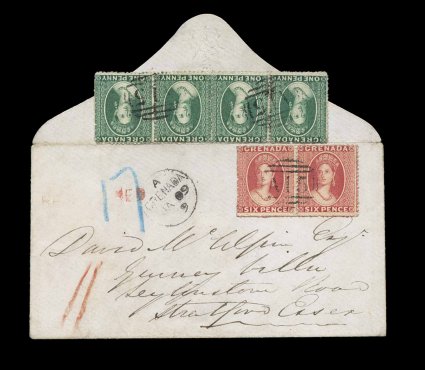 ONE PENNY ONE PENNY ONE PENNY ONE PENNY
GRENADA GRENADA GRENADA GRENADA
GRENADA GRENADA
A15
SIX PENCE SIX PENCE
17
A
GRENADA
David McAlpin Esqr
Gurney Villa
Leytonstone Road
Stratford Essex